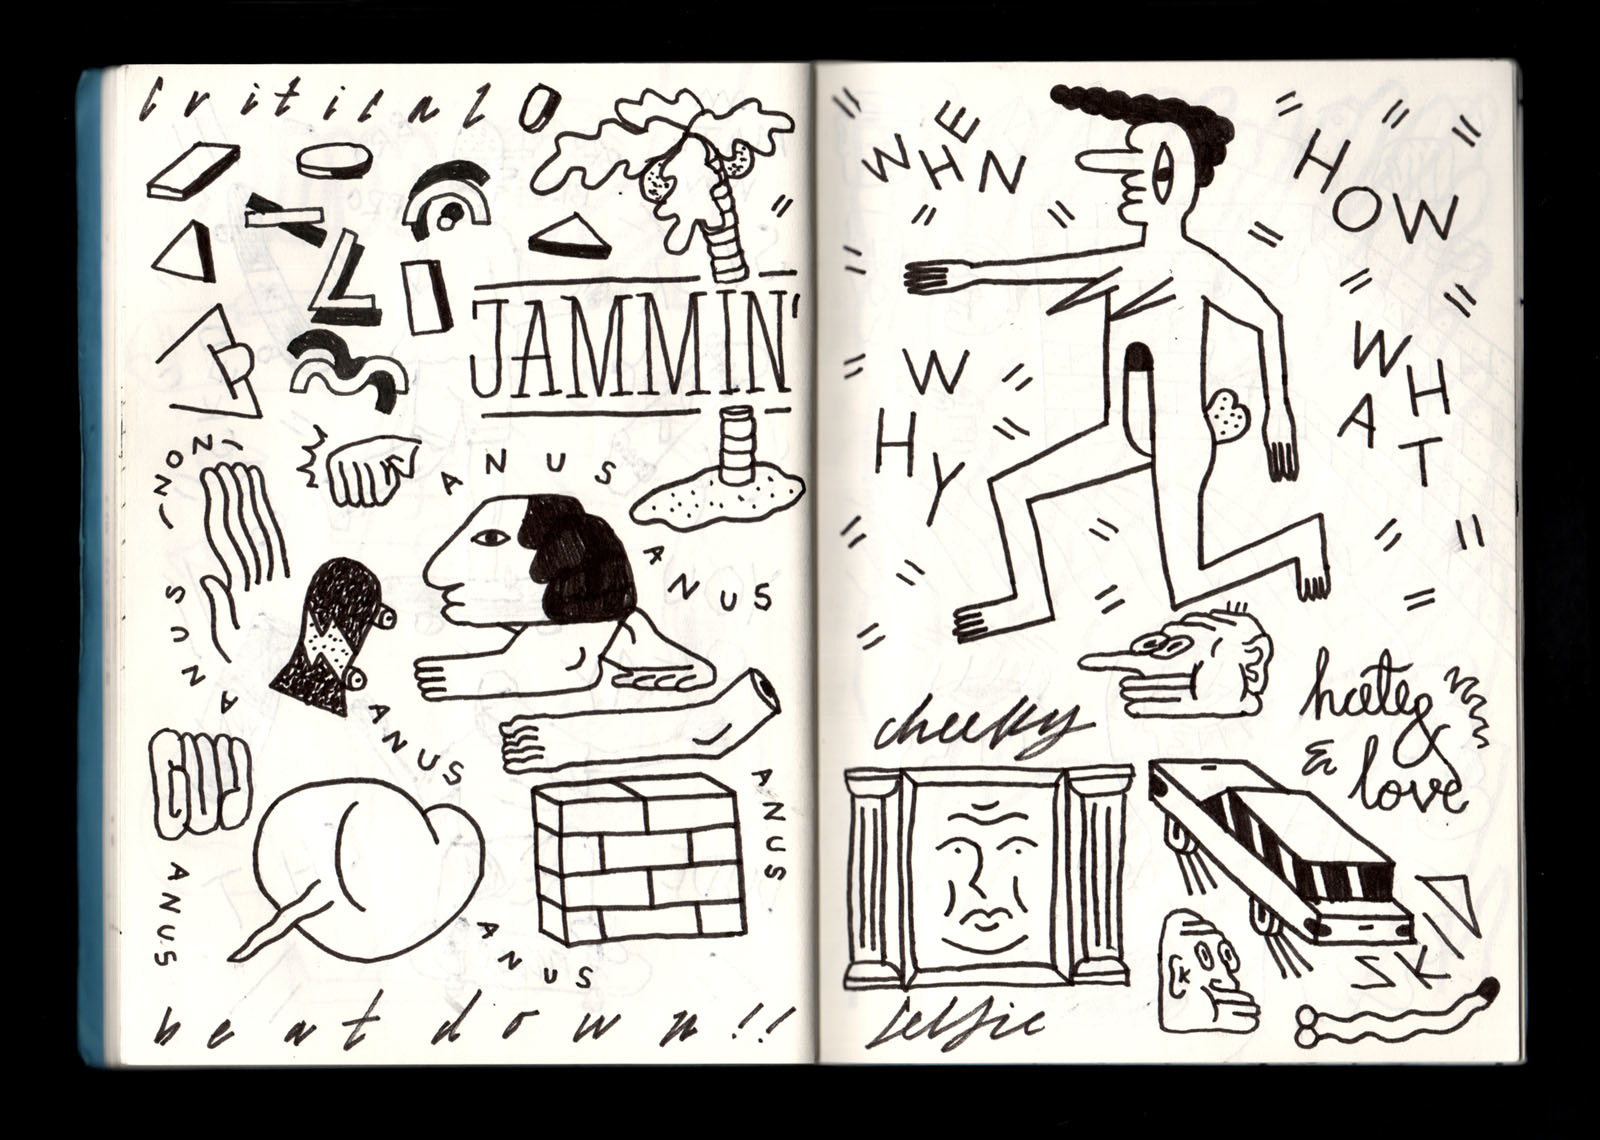 critical
JAMMIN'
NON,
ANUS
ANUS
ANUS
ANUS
GUY
ANUS
ANUS
ANUS
beat down!!
WHEN
HOW
WHY
WHAT
cheeky
hate
& love
SK
selfie